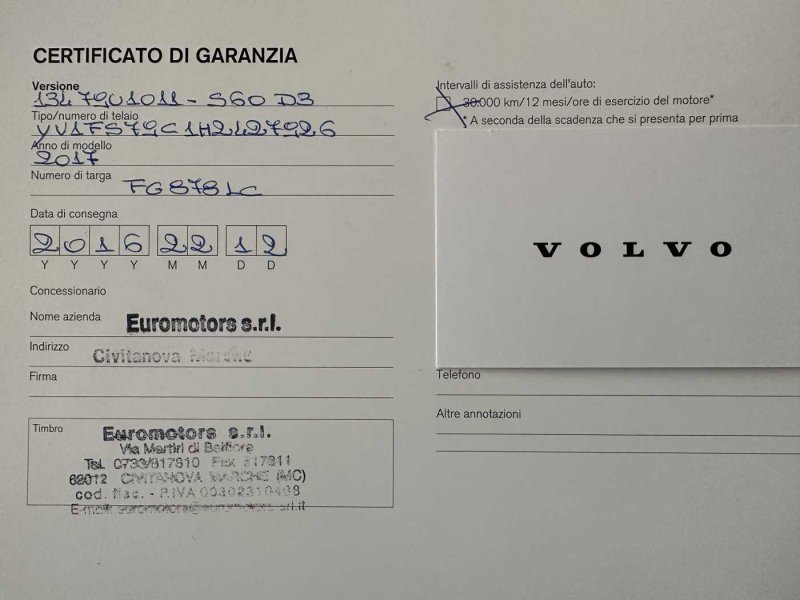 CERTIFICATO DI GARANZIA
Versione
134 79U1011 - S60 D3
Tipo/numero di telaio
YV1FS79C1H2427926
Anno di modello
2017
Numero di targa
FG878LC
Data di consegna
2016 22 12
Y Y Y Y M M D D
Concessionario
Nome azienda
Euromotors s.r.l.
Indirizzo
Civitanova Marche
Firma
Timbro
Euromotors s.r.l.
Via Martiri di Belfiore
Tel. 0733/817810 Fax 817811
62012 CIVITANOVA MARCHE (MC)
cod. fisc. - P.IVA
E-mail:
Intervalli di assistenza dell'auto:
30.000 km/12 mesi/ore di esercizio del motore*
* A seconda della scadenza che si presenta per prima
VOLVO
Telefono
Altre annotazioni